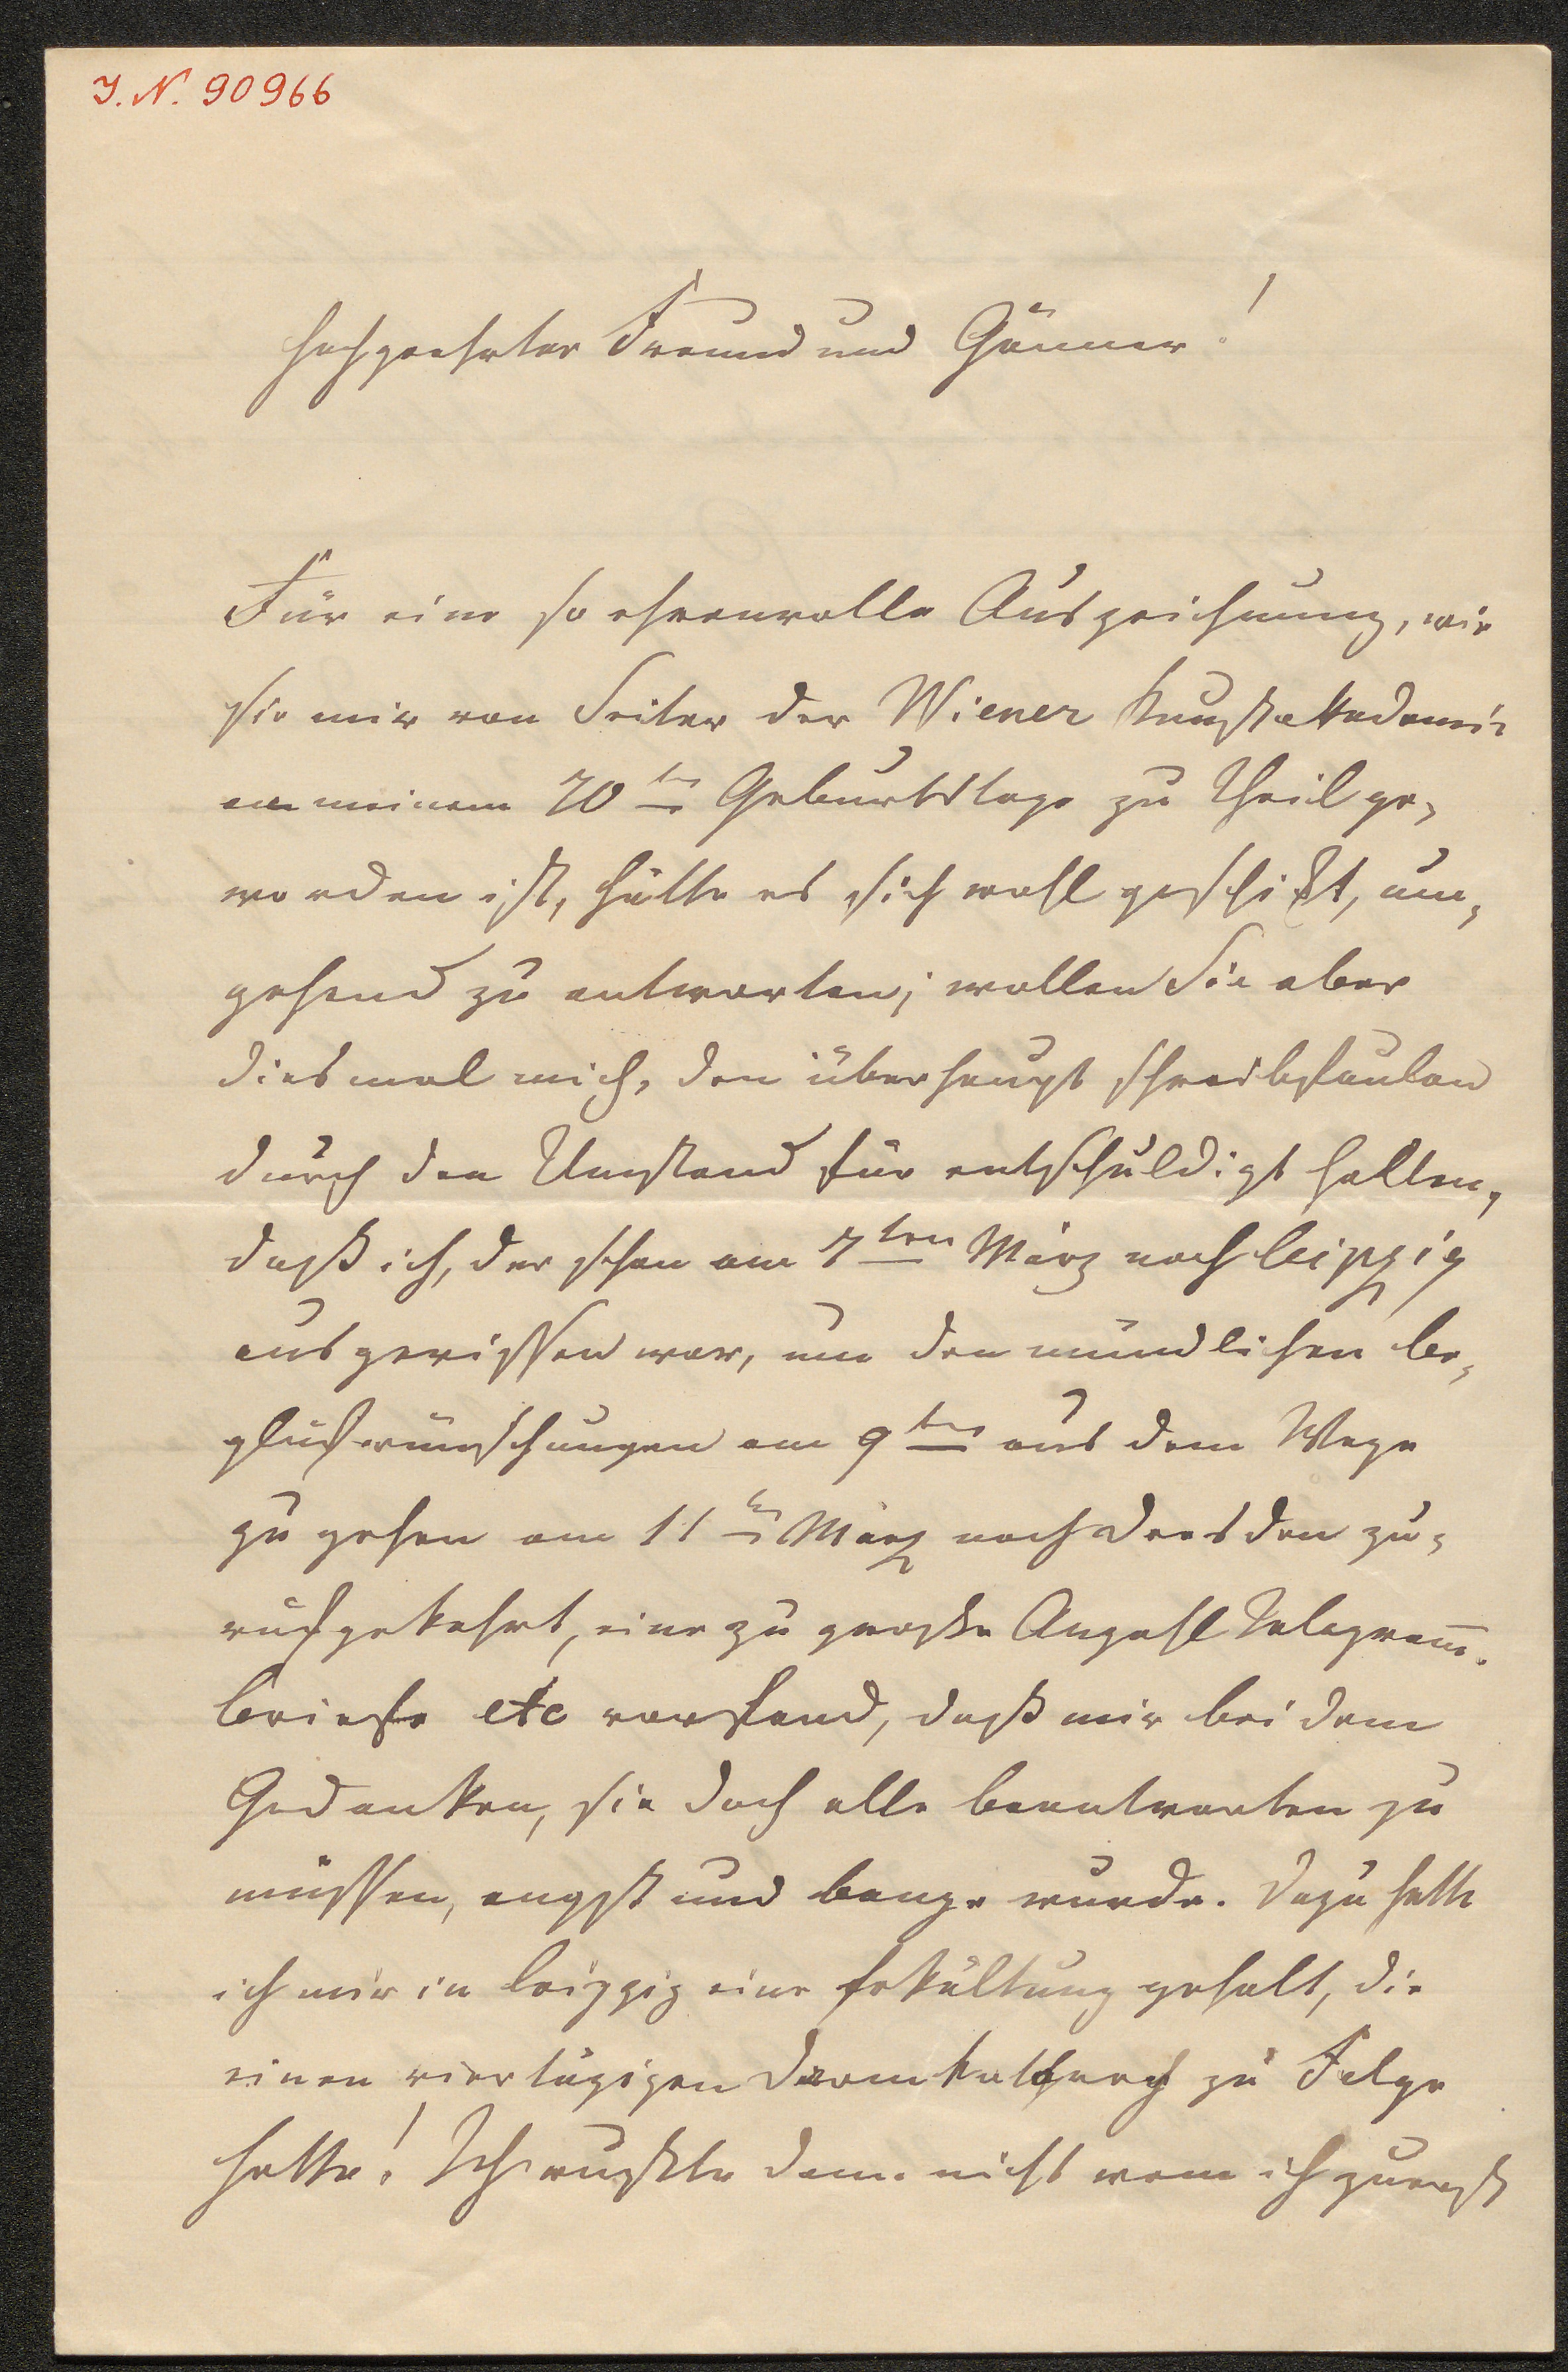 J. N. 90966
Hochgeehrter Freund und Gönner!
Für eine so ehrenvolle Auszeichnung, wie
sie mir von Seiten der Wiener Kunstakademie
an meinem 70ten Geburtstage zu Theil ge-
worden ist, hätte es sich wohl geschickt, um-
gehend zu antworten; wollen Sie aber
diesmal mich, den überhaupt schreibfaulen
durch den Umstand für entschuldigt halten,
daß ich, der schon am 7ten März nach Leipzig
ausgerissen war, um den mündlichen Be-
glückwünschungen am 9ten aus dem Wege
zu gehen am 11ten März nach Dresden zu-
rückgekehrt, eine zu große Anzahl Telegram̅.
Briefe etc vorfand, daß mir bei dem
Gedanken, sie doch alle beantworten zu
müssen, angst und bange wurde. Dazu hatte
ich mir in Leipzig eine Erkältung geholt, die
einen viertägigen Darmkatharrh zu Folge
hatte! Ich wußte dann nicht wem ich zuerst